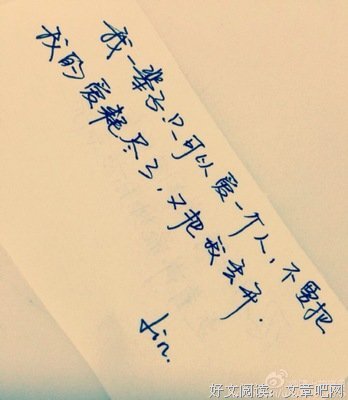 我一辈子只可以爱一个人，不要把
我的爱耗尽了，又把我丢弃.
Jin.
好文阅读：文章吧网